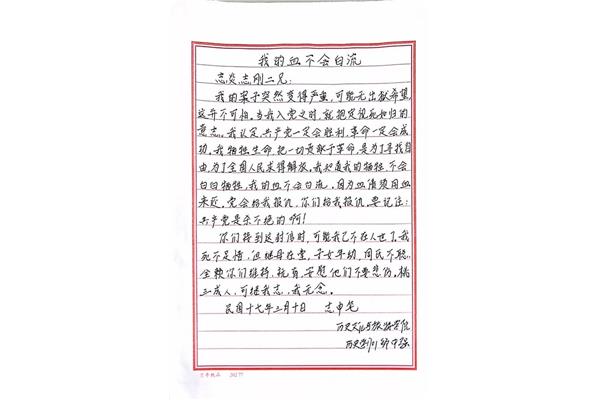 我的血不会白流
志炎、志刚二兄：
我的案子突然变得严重，可能无出狱希望，
这并不可怕。当我入党之时，就抱定视死如归的
意志。我认定共产党一定会胜利，革命一定会成
功。我牺牲生命，把一切贡献于革命，是为了寻找自
由，为了全国人民求得解放。我知道我的牺牲，不会
白白牺牲，我的血不会白流，因为血债须用血
来还。党会给我报仇，你们给我报仇。要记住：
共产党是杀不绝的啊！
你们得到这封信时，可能我已不在人世了。我
死不足惜，但继母在堂，子女年幼，周氏不聪，
全赖你们维持，抚育、安慰他们不要悲伤。桃
三成人，可继我志，我无念。
民国十七年三月十日 志申笔
历史文化与旅游学院
历史学